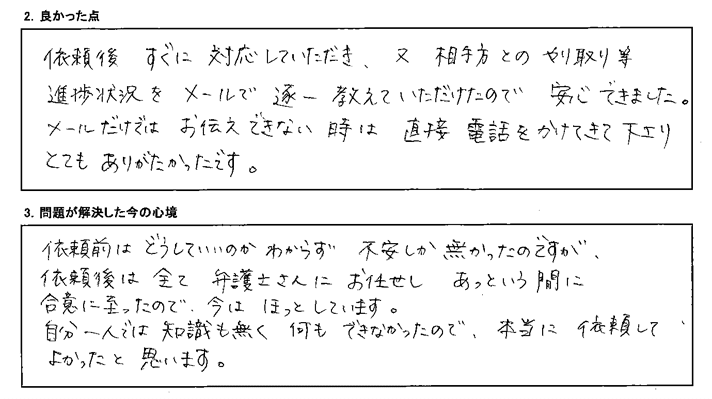 2. 良かった点
依頼後 すぐに 対応していただき、又 相手方とのやり取り等
進捗状況を メールで 逐一 教えていただけたので 安心できました。
メールだけでは お伝えできない 時は 直接 電話をかけてきて下さり
とても ありがたかったです。
3. 問題が解決した今の心境
依頼前は どうしていいのか わからず 不安しか 無かったのですが、
依頼後は 全て 弁護士さんに お任せし あっという間に
合意に至ったので、今は ほっとしています。
自分一人では 知識も無く 何も できなかったので、本当に 依頼して
よかったと 思います。